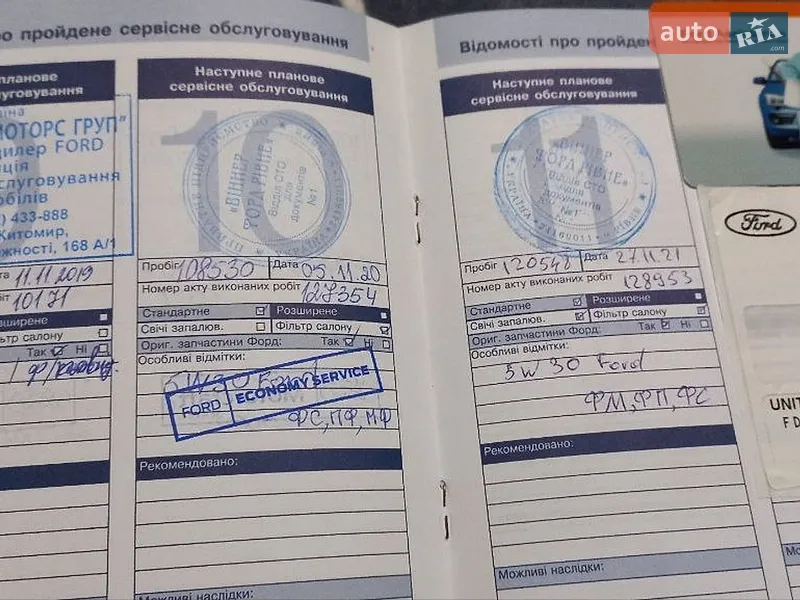 о пройдене сервісне обслуговування
планове
слуговування
МОТОРС ГРУП"
дилер FORD
слуговування
білів
433-888
Житомир,
168 А/1
11.11.2019
10171
зширене
ьтр салону
Так Ні
Наступне планове
сервісне обслуговування
10
"ВІННЕР
ФОРД РІВНЕ"
Відділ СТО
для
документів
№1
Пробіг 108530 Дата 05.11.20
Номер акту виконаних робіт
127354
Стандартне Розширене
Свічі запалюв. Фільтр салону
Ориг. запчастини Форд: Так Ні
Особливі відмітки:
5W30 Ford
FORD ECONOMY SERVICE
ФС, ПФ, МФ
Рекомендовано:
Можливі наслідки:
Відомості про пройден
Наступне планове
сервісне обслуговування
11
"ВІННЕР
ФОРД РІВНЕ"
Відділ СТО
для
документів
№1
УКРАЇНА
Пробіг 120548 Дата 27.11.21
Номер акту виконаних робіт
128953
Стандартне Розширене
Свічі запалюв. Фільтр салону
Ориг. запчастини Форд: Так Ні
Особливі відмітки:
5W30 Ford
ФМ, ФП, ФС
Рекомендовано:
Можливі наслідки:
auto RIA
.com
Ford
UNIT
F D